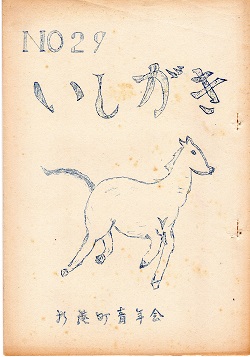 NO29
いしがき
新港町青年会